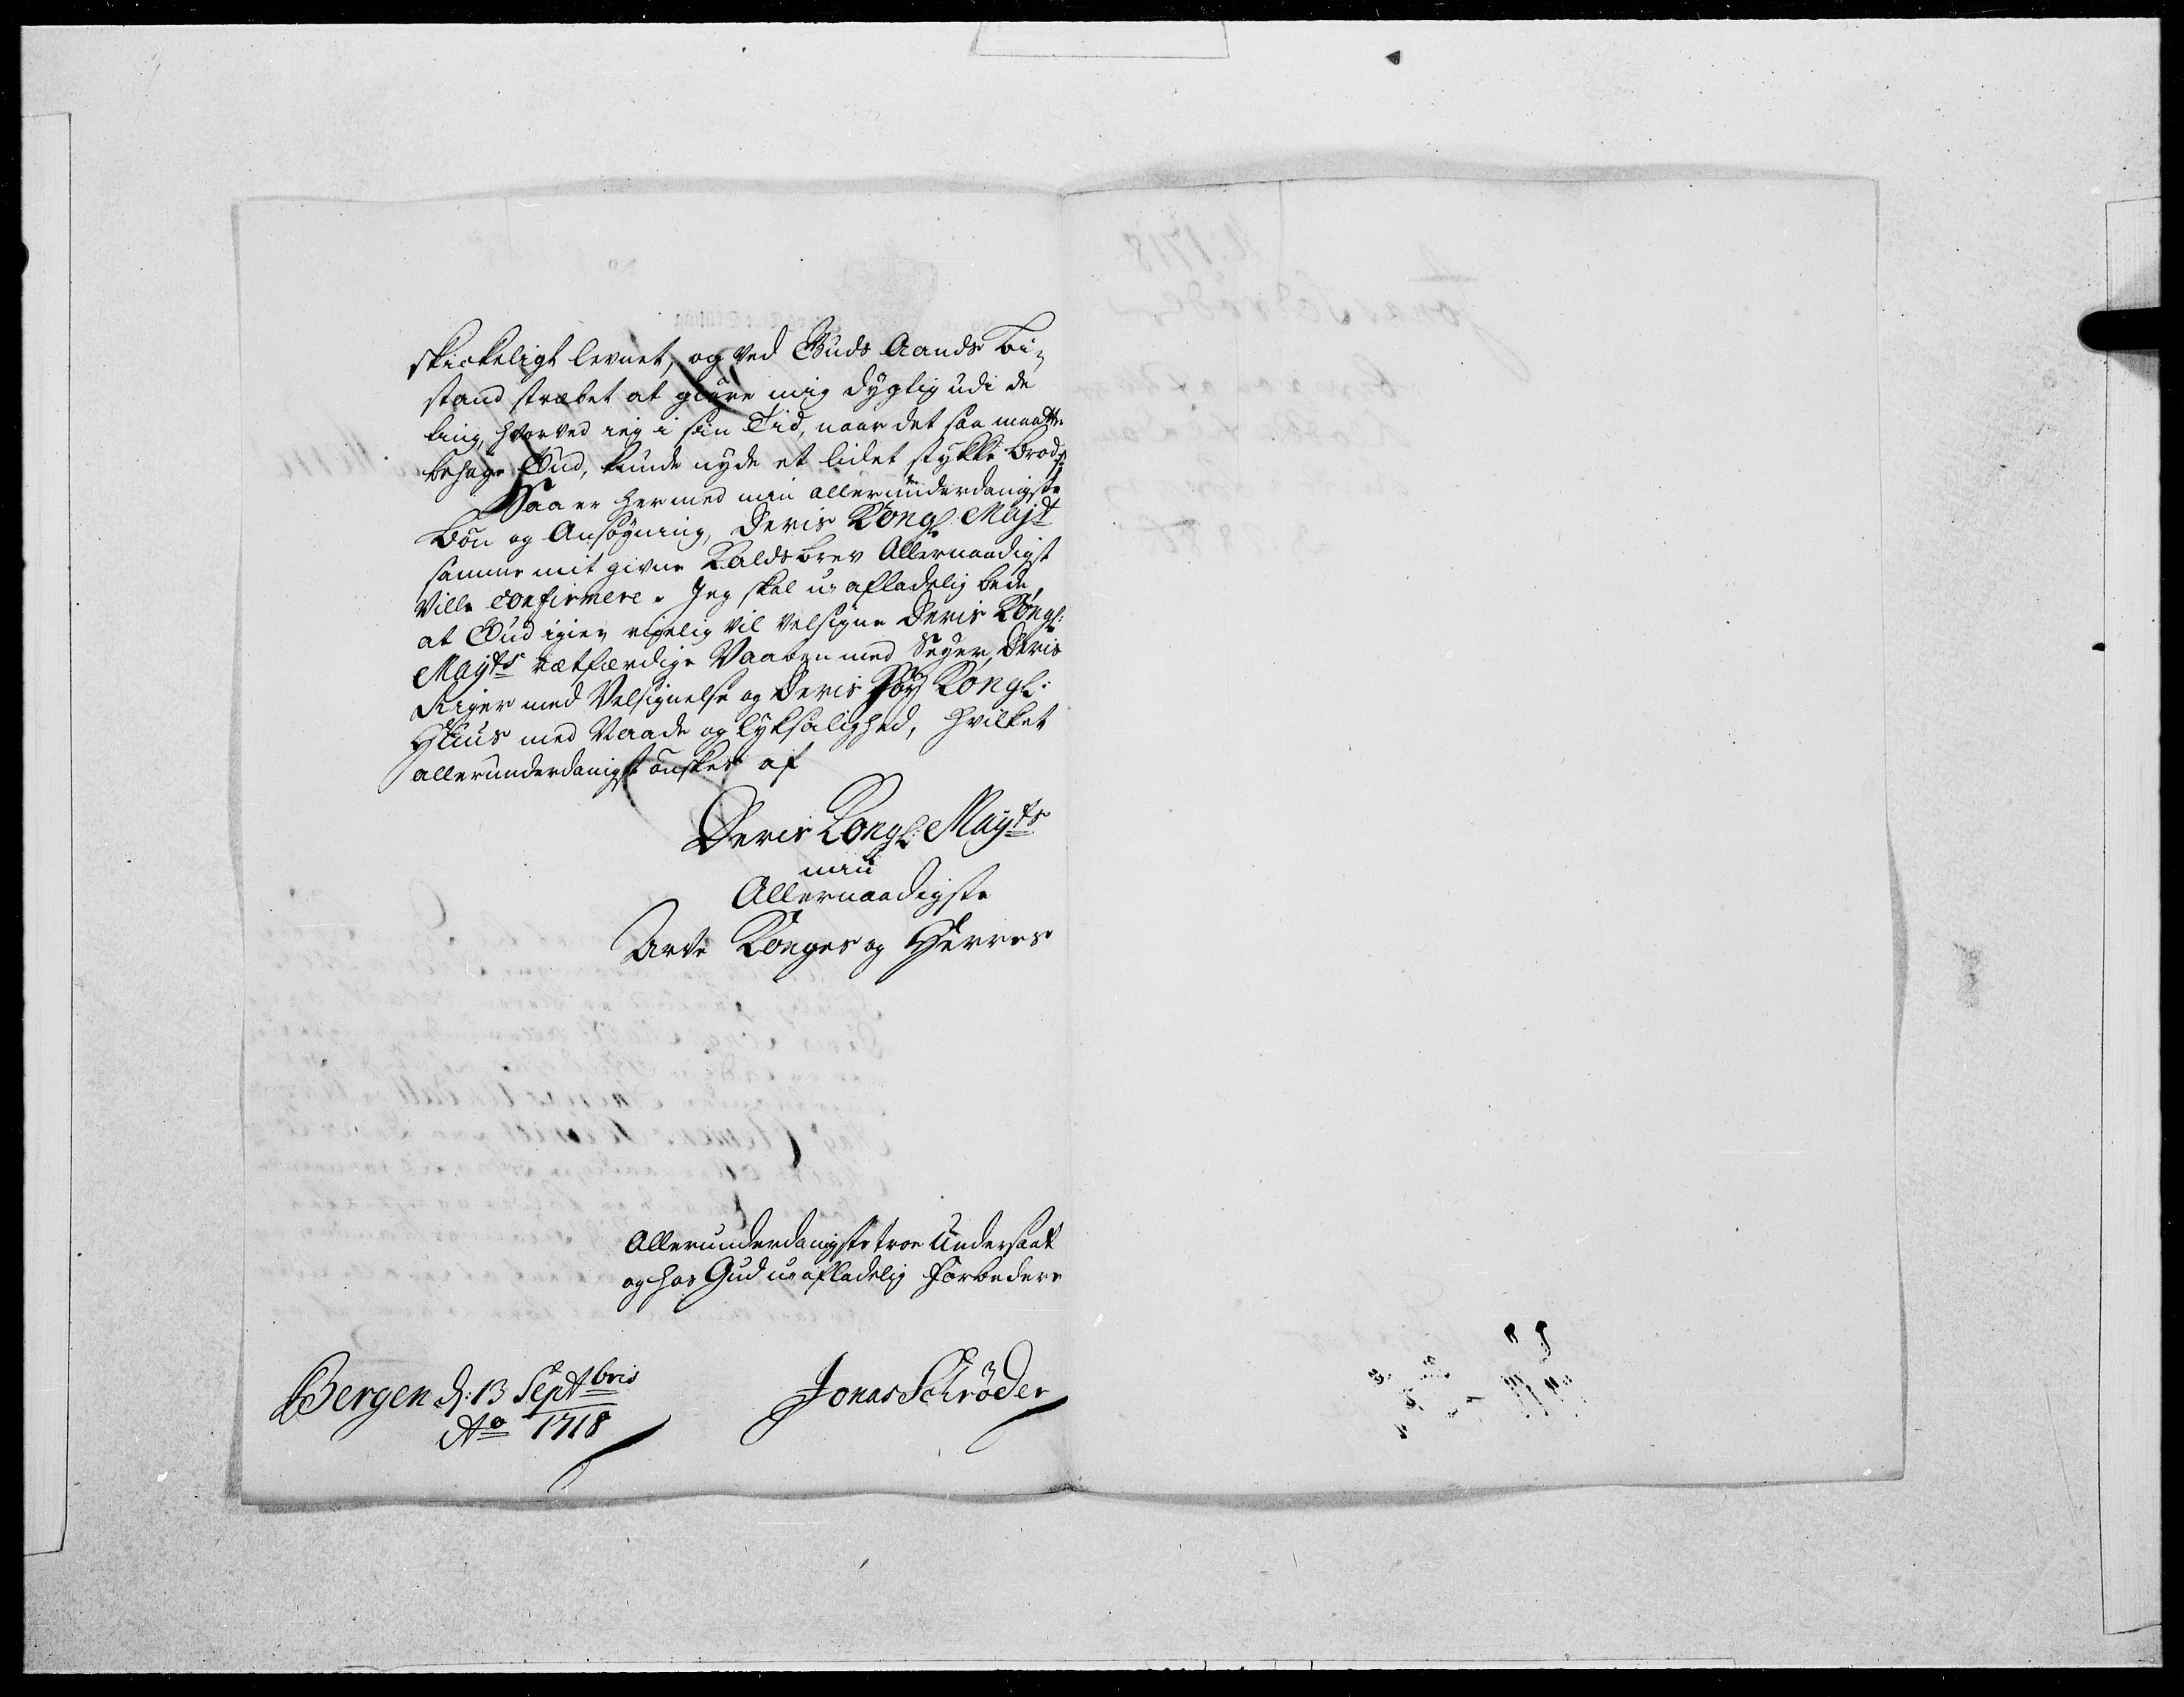 skickeligt levnet, og ved Guds Aands bi-
stand stræbet at giøre mig dygtig udi de
ting, hvorved ieg i sin Tid, naar det saa maatte
behage Gud, kunde nyde et lidet stykke brød;
Saa er hermed min allerunderdanigste
bøn og Ansøgning, Deris Kongl: Majt
samme mit givne Kaldsbrev Allernaadigst
ville confirmere. Jeg skal u-afladelig bede,
at Gud igien rigelig vil velsigne Deris Kongl:
Mayts rætfærdige Vaaben med Seyer, Deris
Riger med Velsignelse og Deris Høy Kongl:
Huus med Naade og lyksalighed, hvilket
allerunderdanigst ønskes af
Deris Kongl: Mayts
min
Allernaadigste
Arve Konges og Herres
Allerunderdanigste troe Undersaat
og hos Gud u-afladelig forbedere
Bergen d: 13 Septbris
Ao 1718
Jonas Schrøder